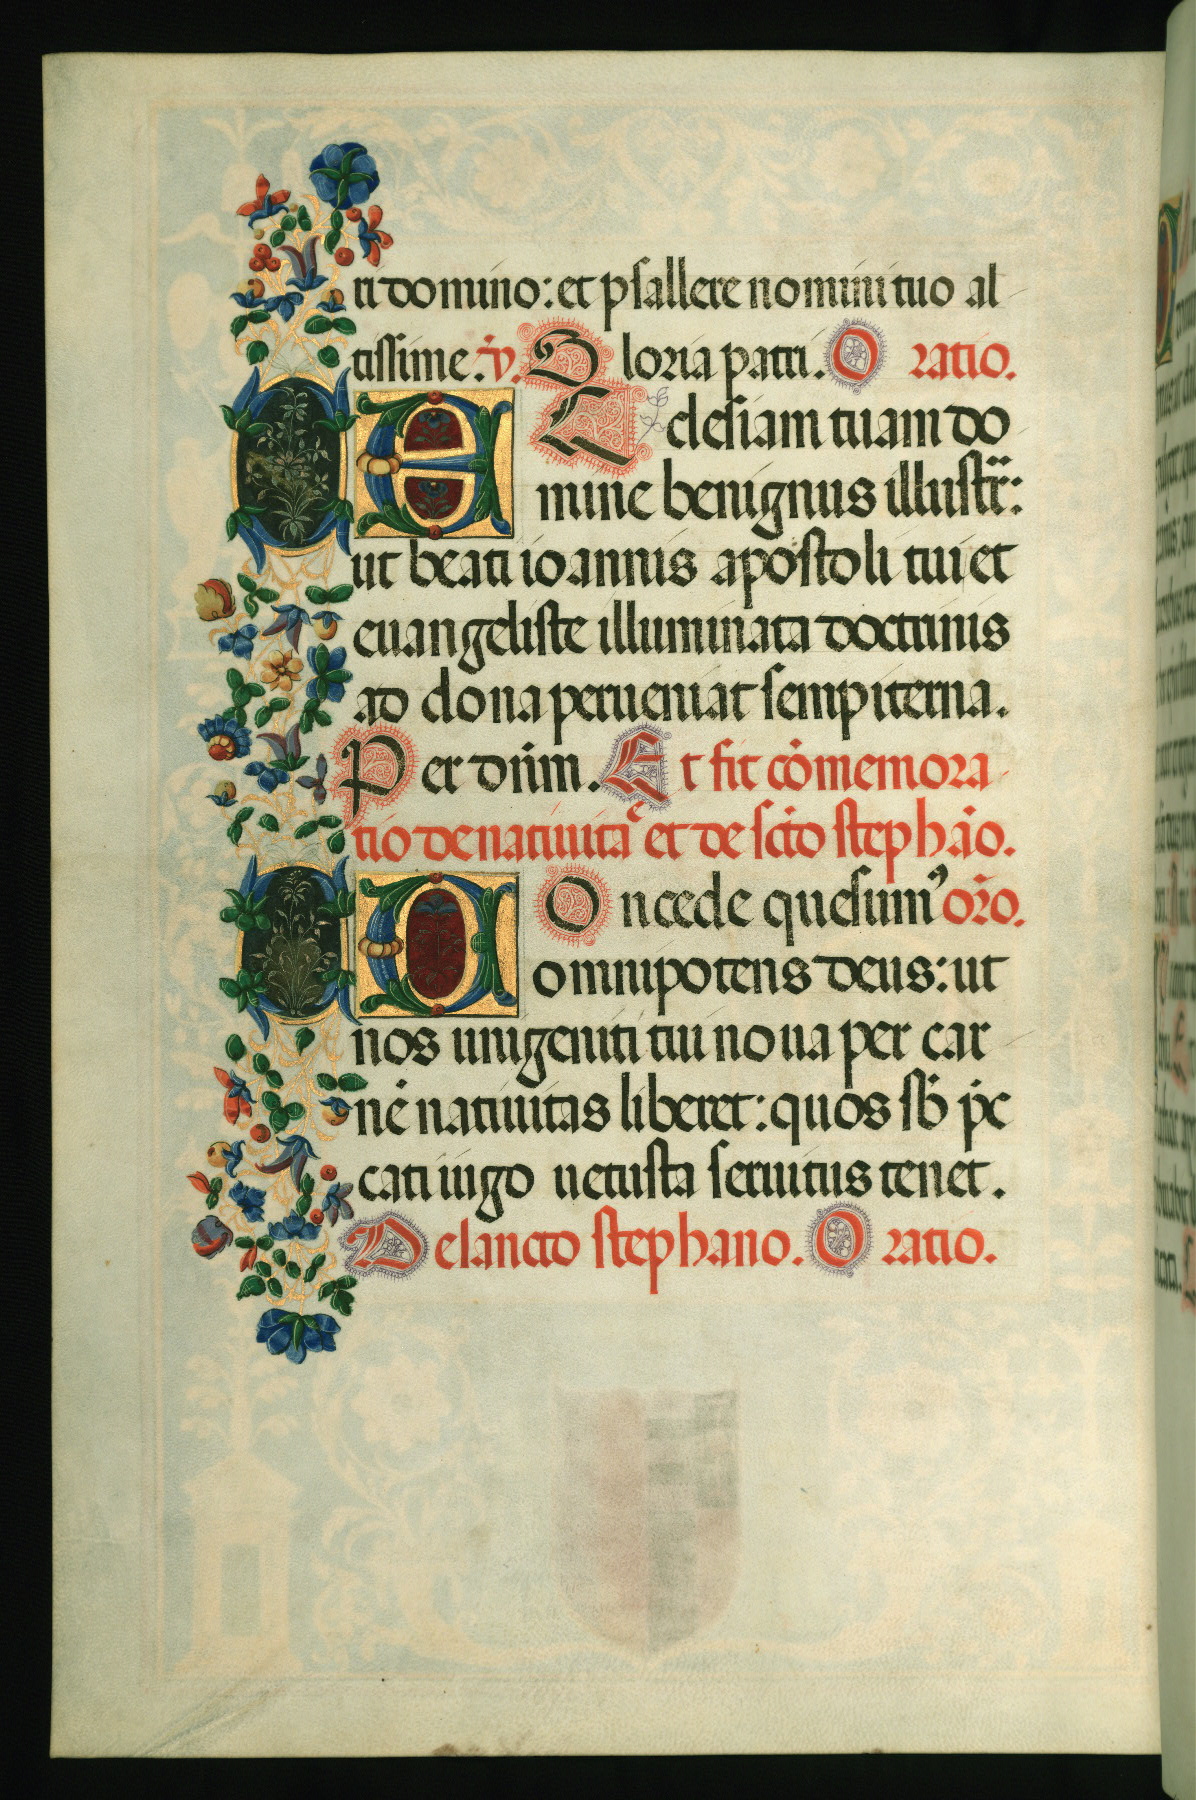 ri domino: et psallere nomini tuo al
tissime. ℣. Gloria patri. Oratio.
E Eclesiam tuam do
mine benignus illustr̄:
ut beati ioannis apostoli tui et
euangeliste illuminata doctrinis
ad dona perueniat sempiterna.
Per dñm. Et fit cōmemora
tio de natiuitaꝭ et de scto stephāo.
C Oncede quesumꝰ oro.
omnipotens deus: ut
nos unigeniti tui noua per car
nē natiuitas liberet: quos sb pc
cati iugo uetusta seruitus tenet.
De sancto stephano. Oratio.